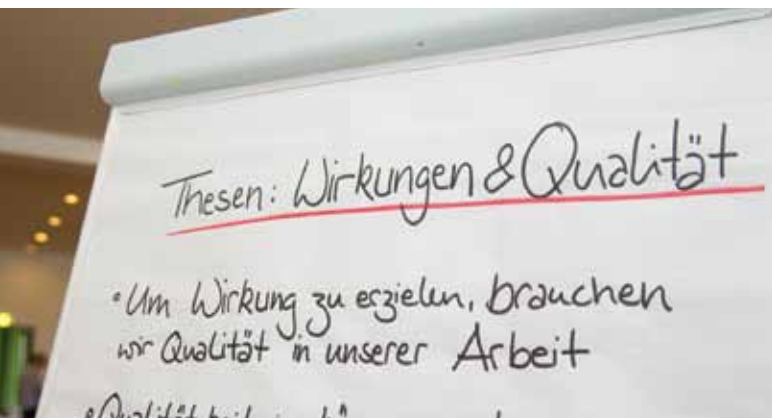 Thesen: Wirkungen & Qualität
• Um Wirkung zu erzielen, brauchen
wir Qualität in unserer Arbeit